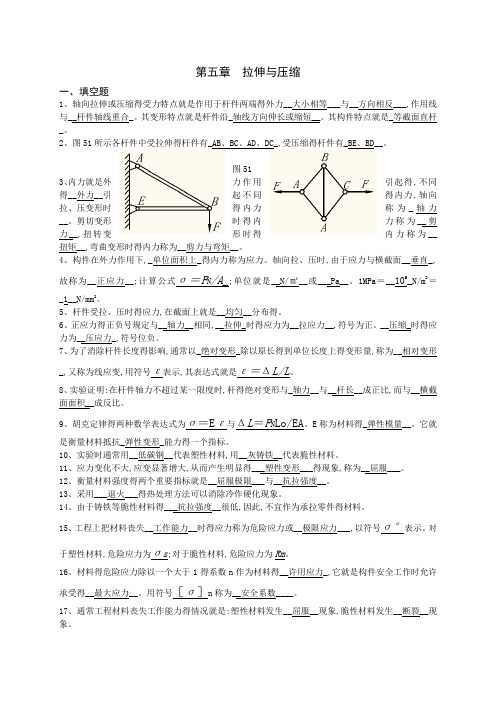 第五章 拉伸与压缩
一、填空题
1、轴向拉伸或压缩得受力特点就是作用于杆件两端得外力__大小相等___与__方向相反___,作用线
与__杆件轴线重合_。其变形特点就是杆件沿_轴线方向伸长或缩短__。其构件特点就是_等截面直杆
_。
2、图51所示各杆件中受拉伸得杆件有_AB、BC、AD、DC_,受压缩得杆件有_BE、BD__。
A
B
E
F
B
F
A
C
F
A
图51
3、内力就是外 力作用 引起得,不同
得__外力__引 起不同 得内力,轴向
拉、压变形时 得内力 称为_轴力
__。剪切变形 时得内 力称为__剪
力__,扭转变 形时得 内力称为__
扭矩__,弯曲变形时得内力称为__剪力与弯矩__。
4、构件在外力作用下,_单位面积上_得内力称为应力。轴向拉、压时,由于应力与横截面__垂直_,
故称为__正应力__;计算公式σ=FN/A_;单位就是__N/㎡__或___Pa__。1MPa＝__10⁶_N/m²＝
_1__N/mm²。
5、杆件受拉、压时得应力,在截面上就是__均匀__分布得。
6、正应力得正负号规定与__轴力__相同,__拉伸_时得应力为__拉应力__,符号为正。__压缩_时得应
力为__压应力_,符号位负。
7、为了消除杆件长度得影响,通常以_绝对变形_除以原长得到单位长度上得变形量,称为__相对变形
_,又称为线应变,用符号ε表示,其表达式就是ε=ΔL/L。
8、实验证明:在杆件轴力不超过某一限度时,杆得绝对变形与_轴力__与__杆长__成正比,而与__横截
面面积__成反比。
9、胡克定律得两种数学表达式为σ=Eε与ΔL=FNLo/EA。E称为材料得_弹性模量__。它就
是衡量材料抵抗_弹性变形_能力得一个指标。
10、实验时通常用__低碳钢__代表塑性材料,用__灰铸铁__代表脆性材料。
11、应力变化不大,应变显著增大,从而产生明显得___塑性变形___得现象,称为__屈服___。
12、衡量材料强度得两个重要指标就是__屈服极限___与__抗拉强度__。
13、采用___退火___得热处理方法可以消除冷作硬化现象。
14、由于铸铁等脆性材料得___抗拉强度__很低,因此,不宜作为承拉零件得材料。
15、工程上把材料丧失__工作能力__时得应力称为危险应力或__极限应力___,以符号σ°表示。对
于塑性材料,危险应力为σs;对于脆性材料,危险应力为Rm。
16、材料得危险应力除以一个大于1得系数n作为材料得__许用应力_,它就是构件安全工作时允许
承受得__最大应力__。用符号[σ]n称为__安全系数____。
17、通常工程材料丧失工作能力得情况就是:塑性材料发生__屈服__现象,脆性材料发生__断裂__现
象。